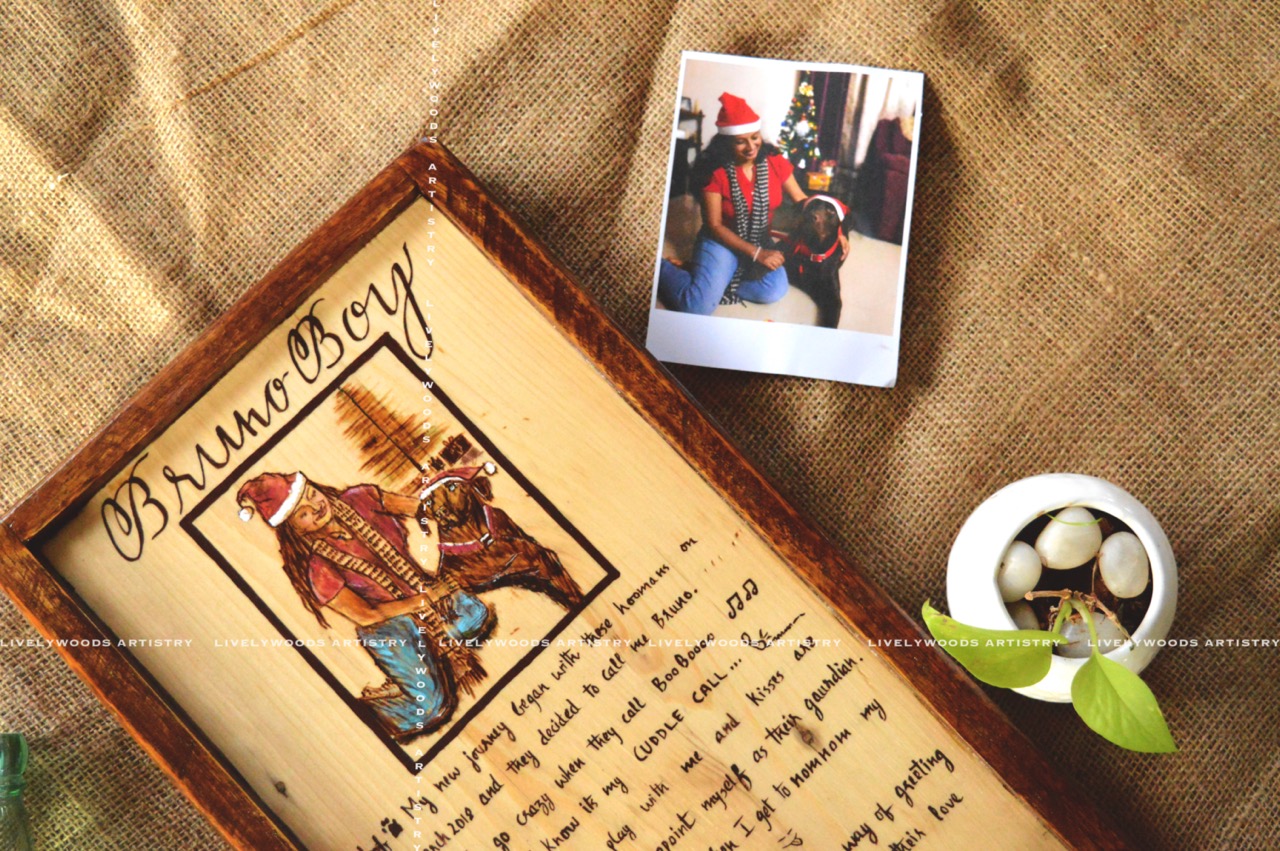 Bruno Boy
My new journey began with those hoomans on
ch 2018 and they decided to call me Bruno. ....
go crazy when they call BooBoooo ♫♫
know its my CUDDLE CALL...
play with me and kisses are
ppoint myself as their gaurdian.
I get to nomnom my
way of greeting
their love
LIVELYWOODS ARTISTRY LIVELYWOODS ARTISTRY LIVELYWOODS ARTISTRY LIVELYWOODS ARTISTRY LIVELYWOODS ARTISTRY LIVELYWOODS ARTISTRY
LIVELYWOODS ARTISTRY LIVELYWOODS ARTISTRY LIVELYWOODS